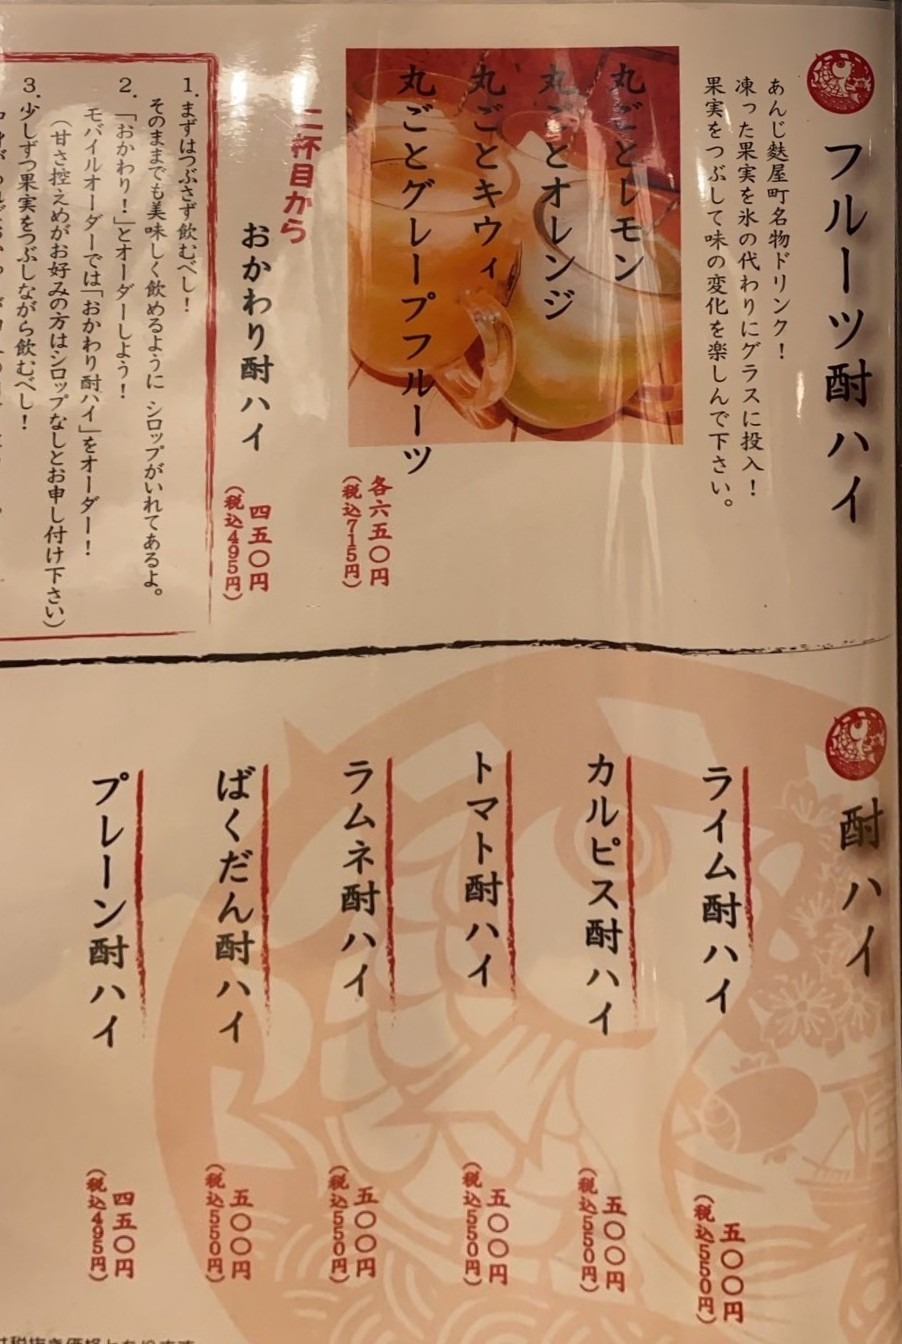 フルーツ酎ハイ
あんじ麩屋町名物ドリンク！
凍った果実を氷の代わりにグラスに投入！
果実をつぶして味の変化を楽しんで下さい。
丸ごとレモン
丸ごとオレンジ
丸ごとキウィ
丸ごとグレープフルーツ
各六五〇円
（税込715円）
二杯目から
おかわり酎ハイ
四五〇円
（税込495円）
1. まずはつぶさず飲むべし！
そのままでも美味しく飲めるように シロップがいれてあるよ。
2. 「おかわり！」とオーダーしよう！
モバイルオーダーでは「おかわり酎ハイ」をオーダー！
（甘さ控えめがお好みの方はシロップなしとお申し付け下さい）
3. 少しずつ果実をつぶしながら飲むべし！
酎ハイ
ライム酎ハイ
五〇〇円
（税込550円）
カルピス酎ハイ
五〇〇円
（税込550円）
トマト酎ハイ
五〇〇円
（税込550円）
ラムネ酎ハイ
五〇〇円
（税込550円）
ばくだん酎ハイ
五〇〇円
（税込550円）
プレーン酎ハイ
四五〇円
（税込495円）